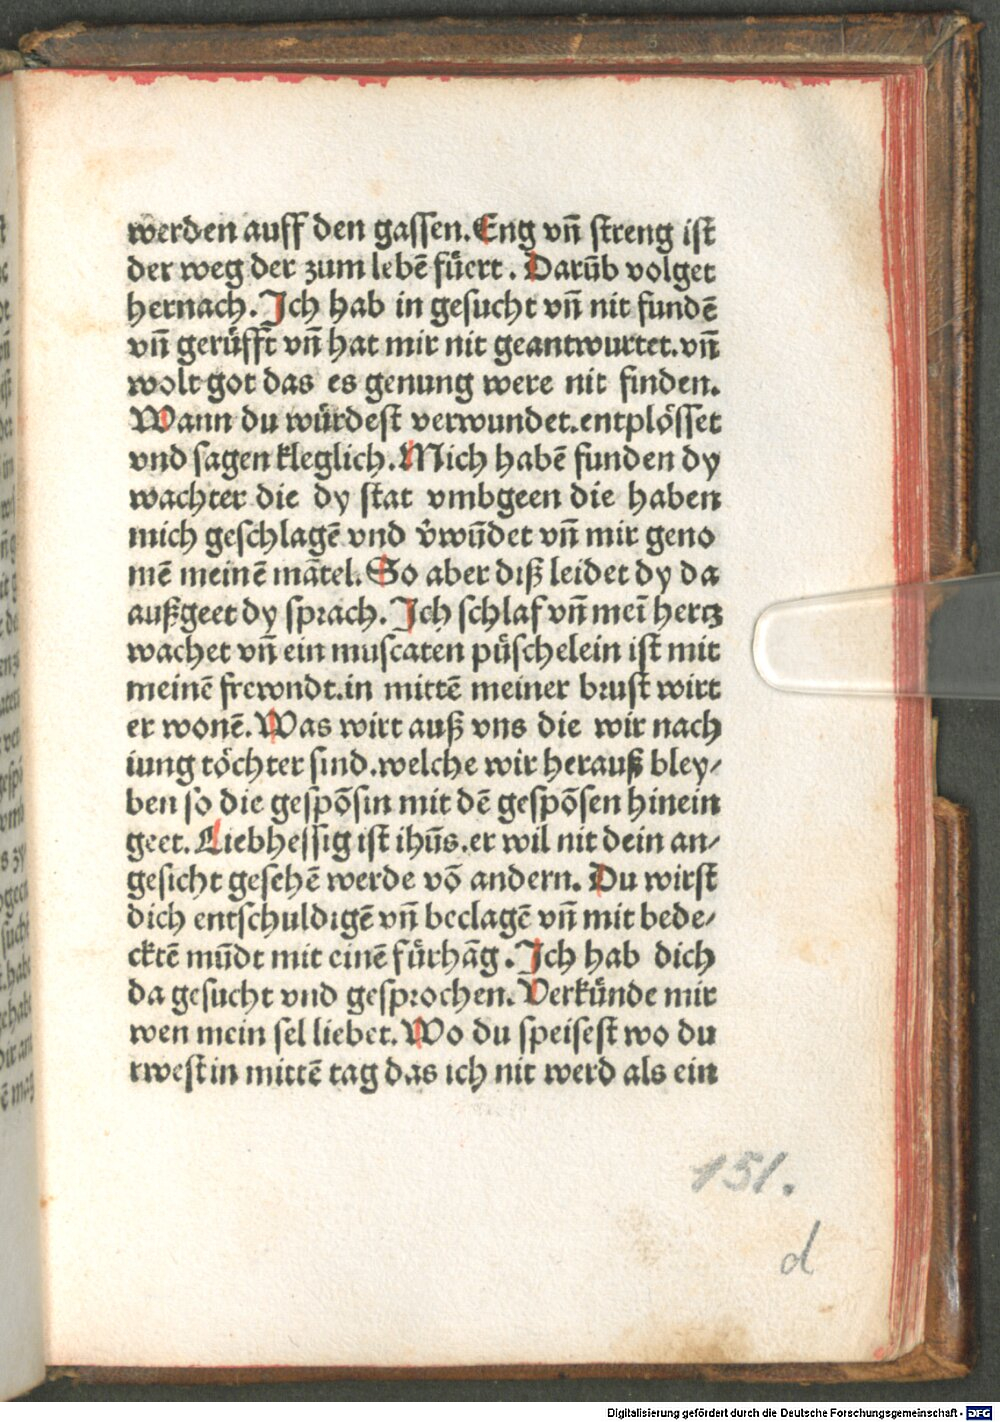 werden auff den gassen. Eng vn̄ streng ist
der weg der zum lebē fu̎ert. Darūb volget
hernach. Ich hab in gesucht vn̄ nit fundē
vn̄ geru̎fft vn̄ hat mir nit geantwurtet. vn̄
wolt got das es genung were nit finden.
Wann du wu̎rdest verwundet. entplo̎sset
vnd sagen kleglich. Mich habē funden dy
wachter die dy stat vmbgeen die haben
mich geschlagē vnd v̕wūdet vn̄ mir geno
mē meinē mātel. So aber diß leidet dy da
außgeet dy sprach. Ich schlaf vn̄ meī hertz
wachet vn̄ ein muscaten pu̎schelein ist mit
meinē frewndt. in mittē meiner brust wirt
er wonē. Was wirt auß vns die wir nach
iung to̎chter sind. welche wir herauß bley⸗
ben so die gespōsin mit dē gespōsen hinein
geet. Liebhessig ist ihūs. er wil nit dein an⸗
gesicht gesehē werde vō andern. Du wirst
dich entschuldigē vn̄ beclagē vn̄ mit bede⸗
cktē mūdt mit einē fu̎rhāg. Ich hab dich
da gesucht vnd gesprochen. Verku̎nde mir
wen mein sel liebet. Wo du speisest wo du
rwest in mittē tag das ich nit werd als ein
151.
d
Digitalisierung gefördert durch die Deutsche Forschungsgemeinschaft - DFG